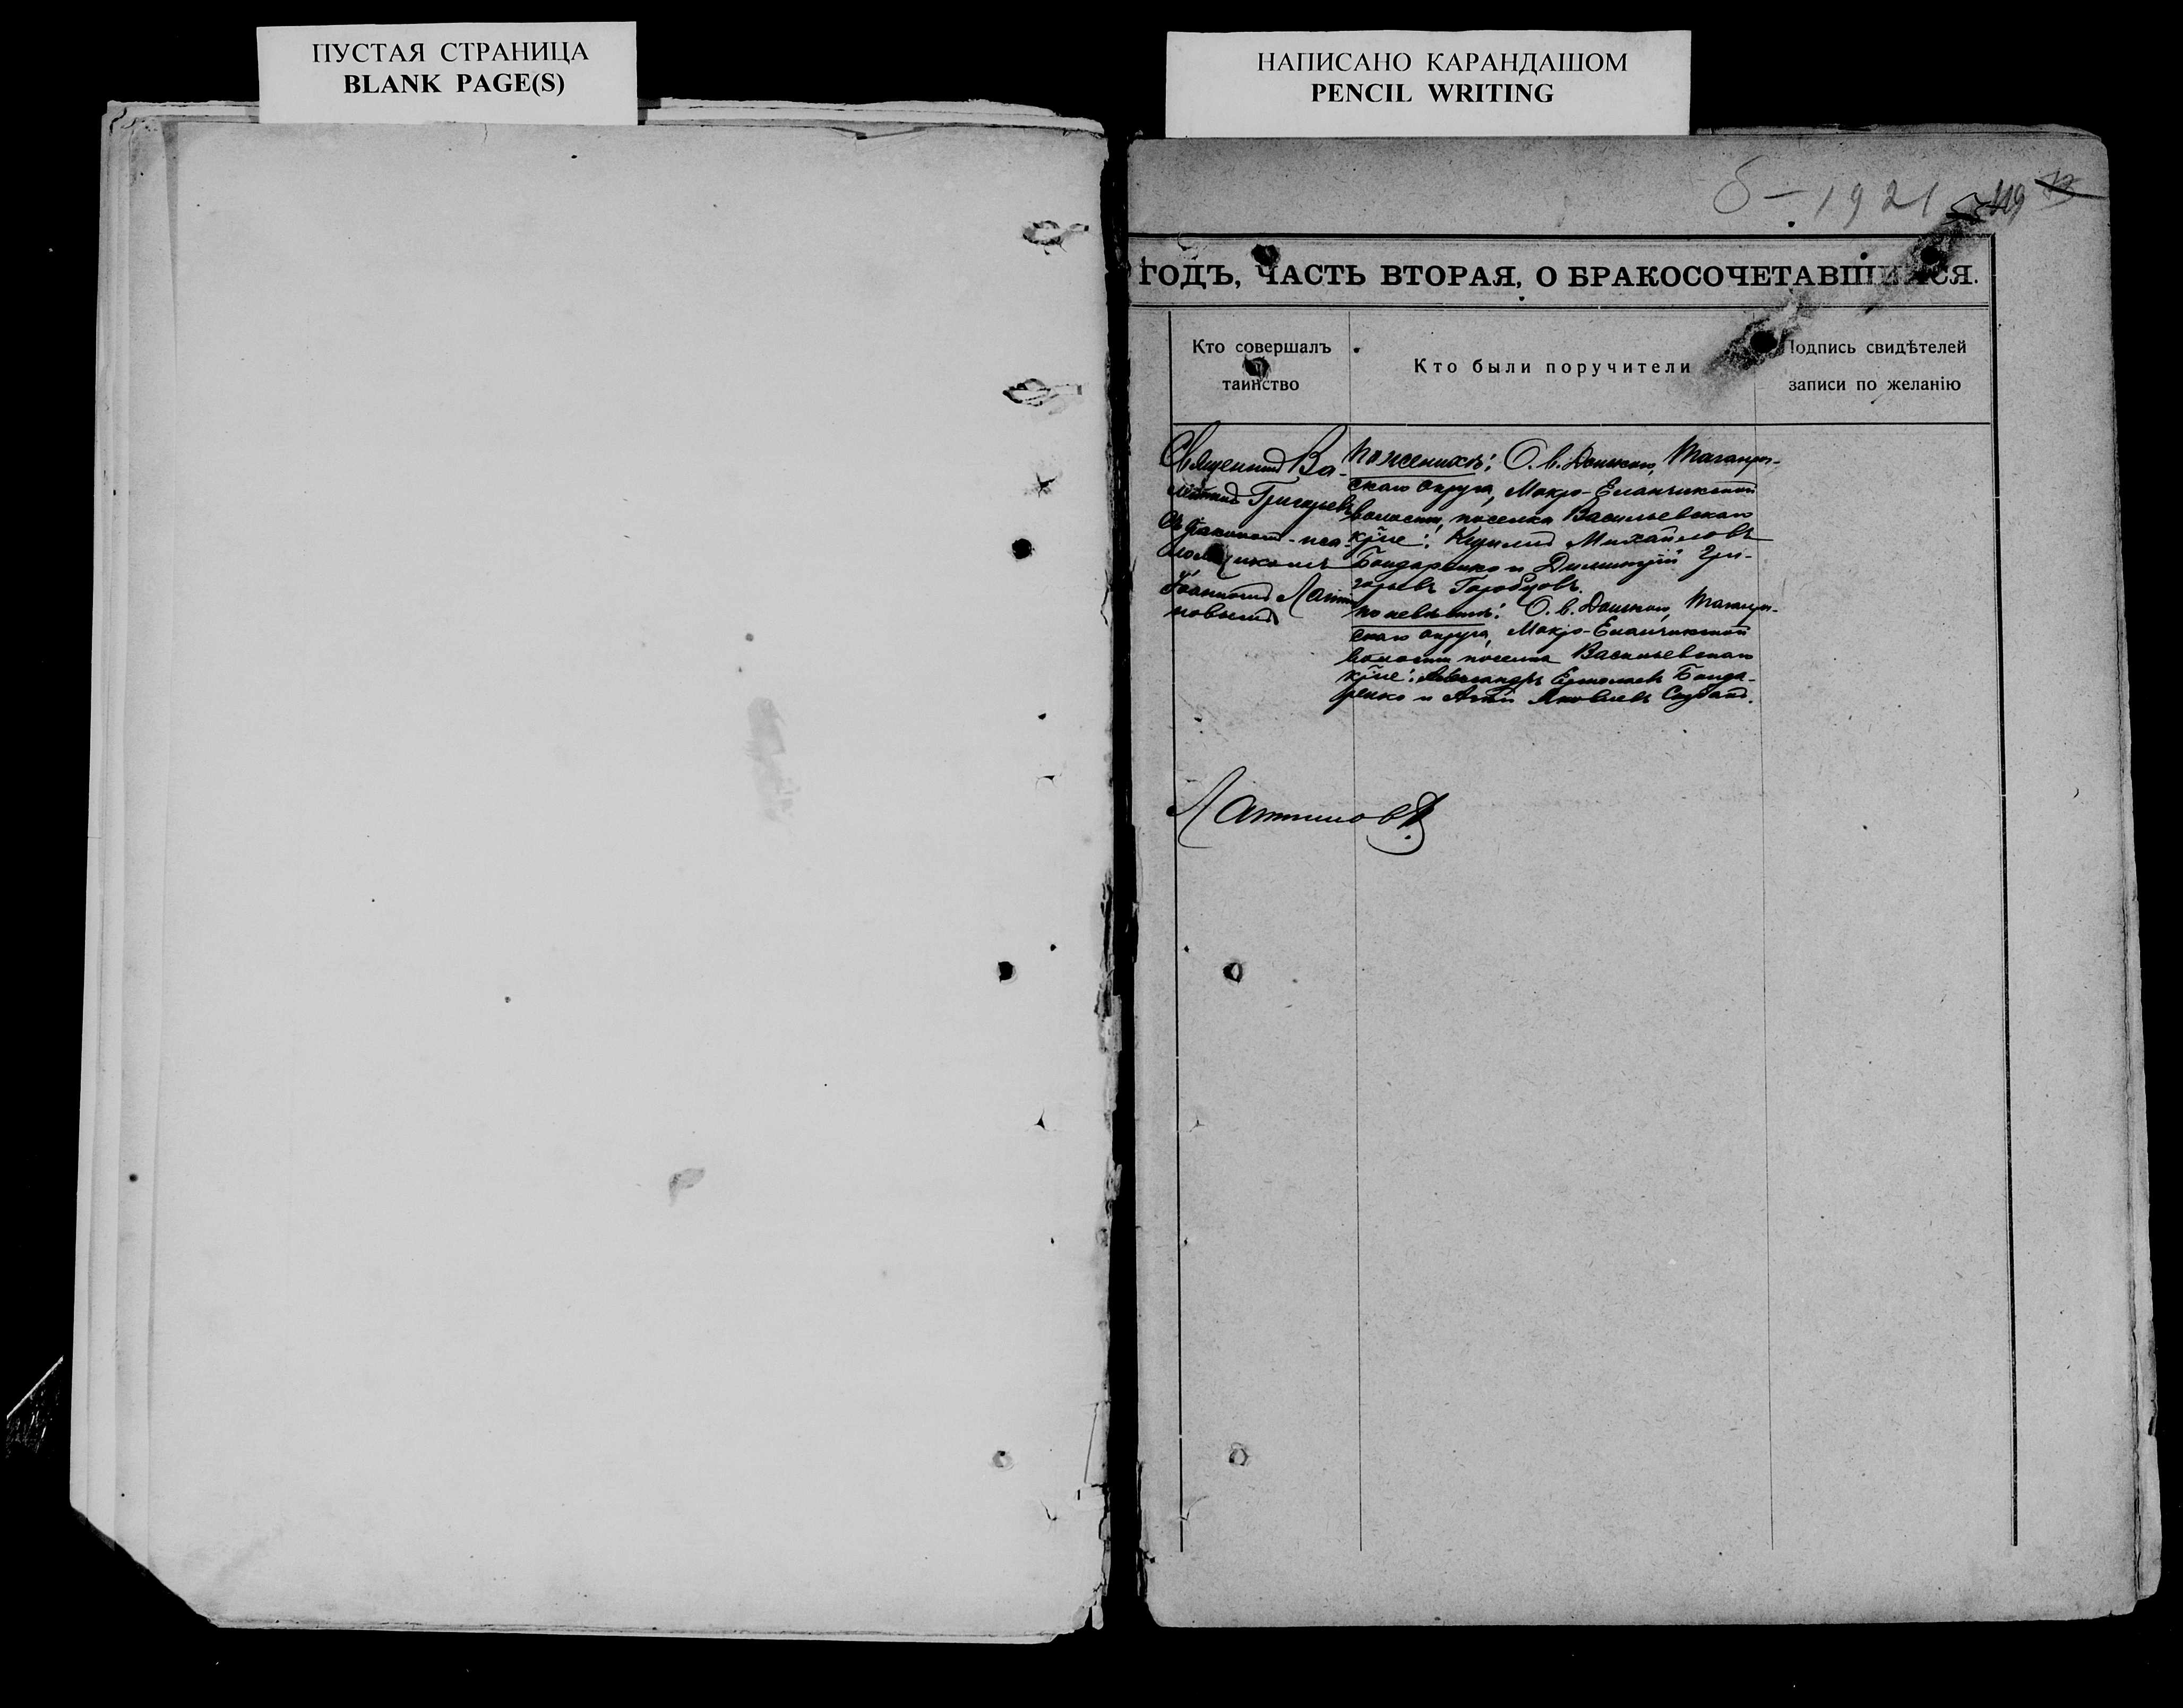 ПУСТАЯ СТРАНИЦА
BLANK PAGE(S)
НАПИСАНО КАРАНДАШОМ
PENCIL WRITING
1921
119
ГОДЪ, ЧАСТЬ ВТОРАЯ, О БРАКОСОЧЕТАВШИХСЯ.
Кто совершалъ
таинство
Кто были поручители
Подпись свидѣтелей
записи по желанію
Священникъ Ва-
Григорьевъ
съ діакономъ-пса-
ломщикомъ
Іоанномъ
новымъ
По женихѣ: О. в. Донского, Таганрог-
скаго округа, Мокро-Еланчикской
волости, поселка Васильевскаго
кр-не: Кириллъ Михайловъ
Бондаренко и Димитрій Гри-
горьевъ
по невѣстѣ: О. в. Донского, Таганрог-
скаго округа, Мокро-Еланчикской
волости поселка Васильевскаго
кр-не: Александръ Ермолаевъ Бонда-
ренко и Яковлевъ